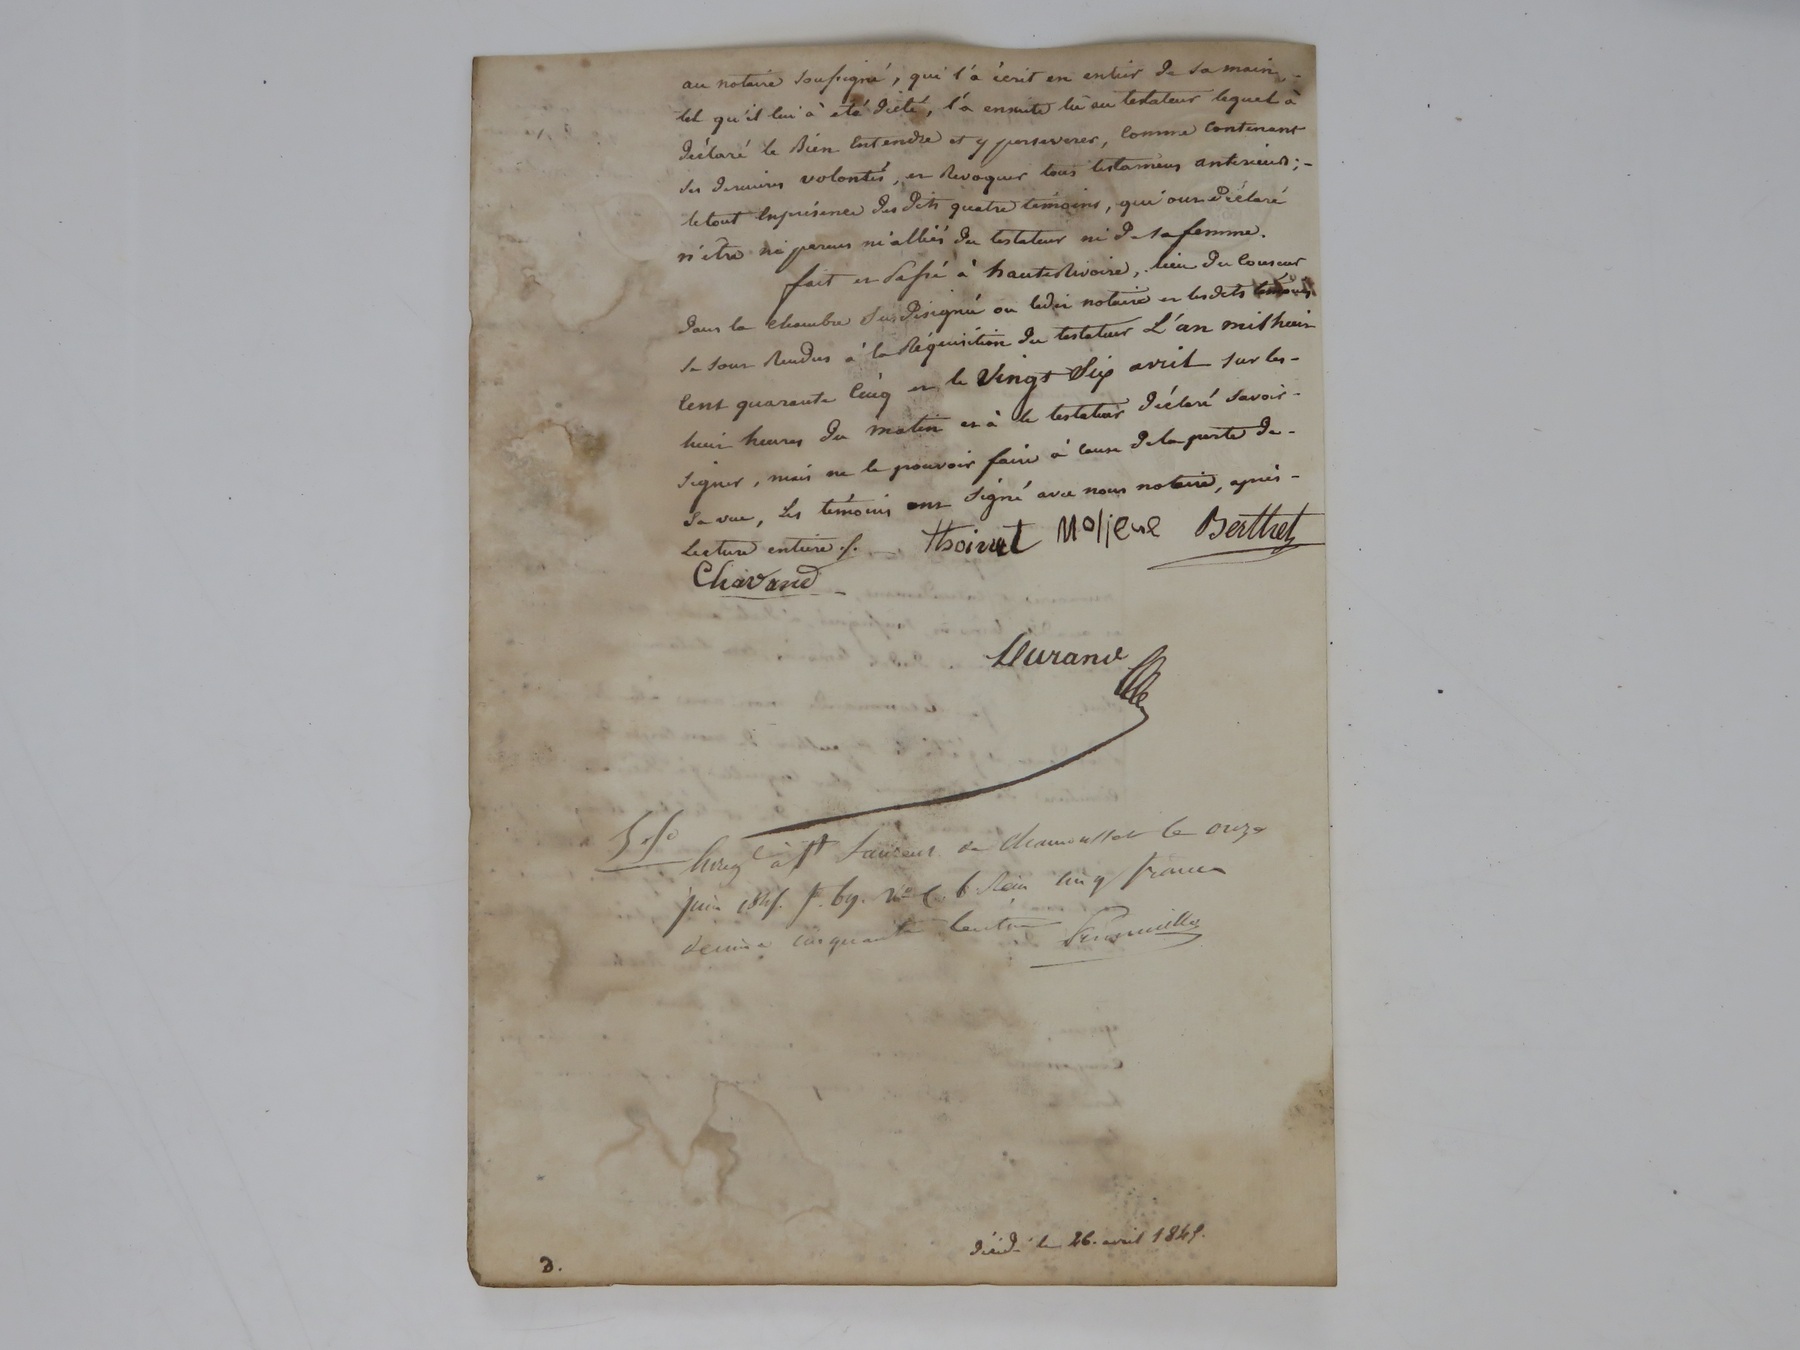 au notaire soussigné, qui l'a écrit en entier de sa main,
tel qu'il lui à été dicté, l'a ensuite lu au testateur lequel à
déclaré le Bien Entendre et y perseverer, Comme Contenant
ses dernieres volontés, et Revoquer tous testamens anterieurs;
le tout En présence des dits quatre témoins, qui ont déclaré
n'être ni parens ni alliés du testateur ni de sa femme.
fait et Passé à hauteRivoire, lieu du
dans la chambre Sus désignée ou ledit notaire et les dits témoins
se sont Rendus à la Réquisition du testateur L'an mil huit
Cent quarante Cinq et le Vingt Six avril sur les
huit heures du matin et à le testateur déclaré Savoir
signer, mais ne le pouvoir faire à Cause de la perte de
Sa vue, Les témoins ont Signé avec nous notaire, après
Lecture entiere ./. Thoinet Molieve Berthet
Chavand
Durand
5.50
Enreg à St Laurent de Chamousset le onze
juin 1845 f. 69. v° C. 6 Reçu cinq francs
décime cinquante centimes
décédé le 26. avril 1845.
D.